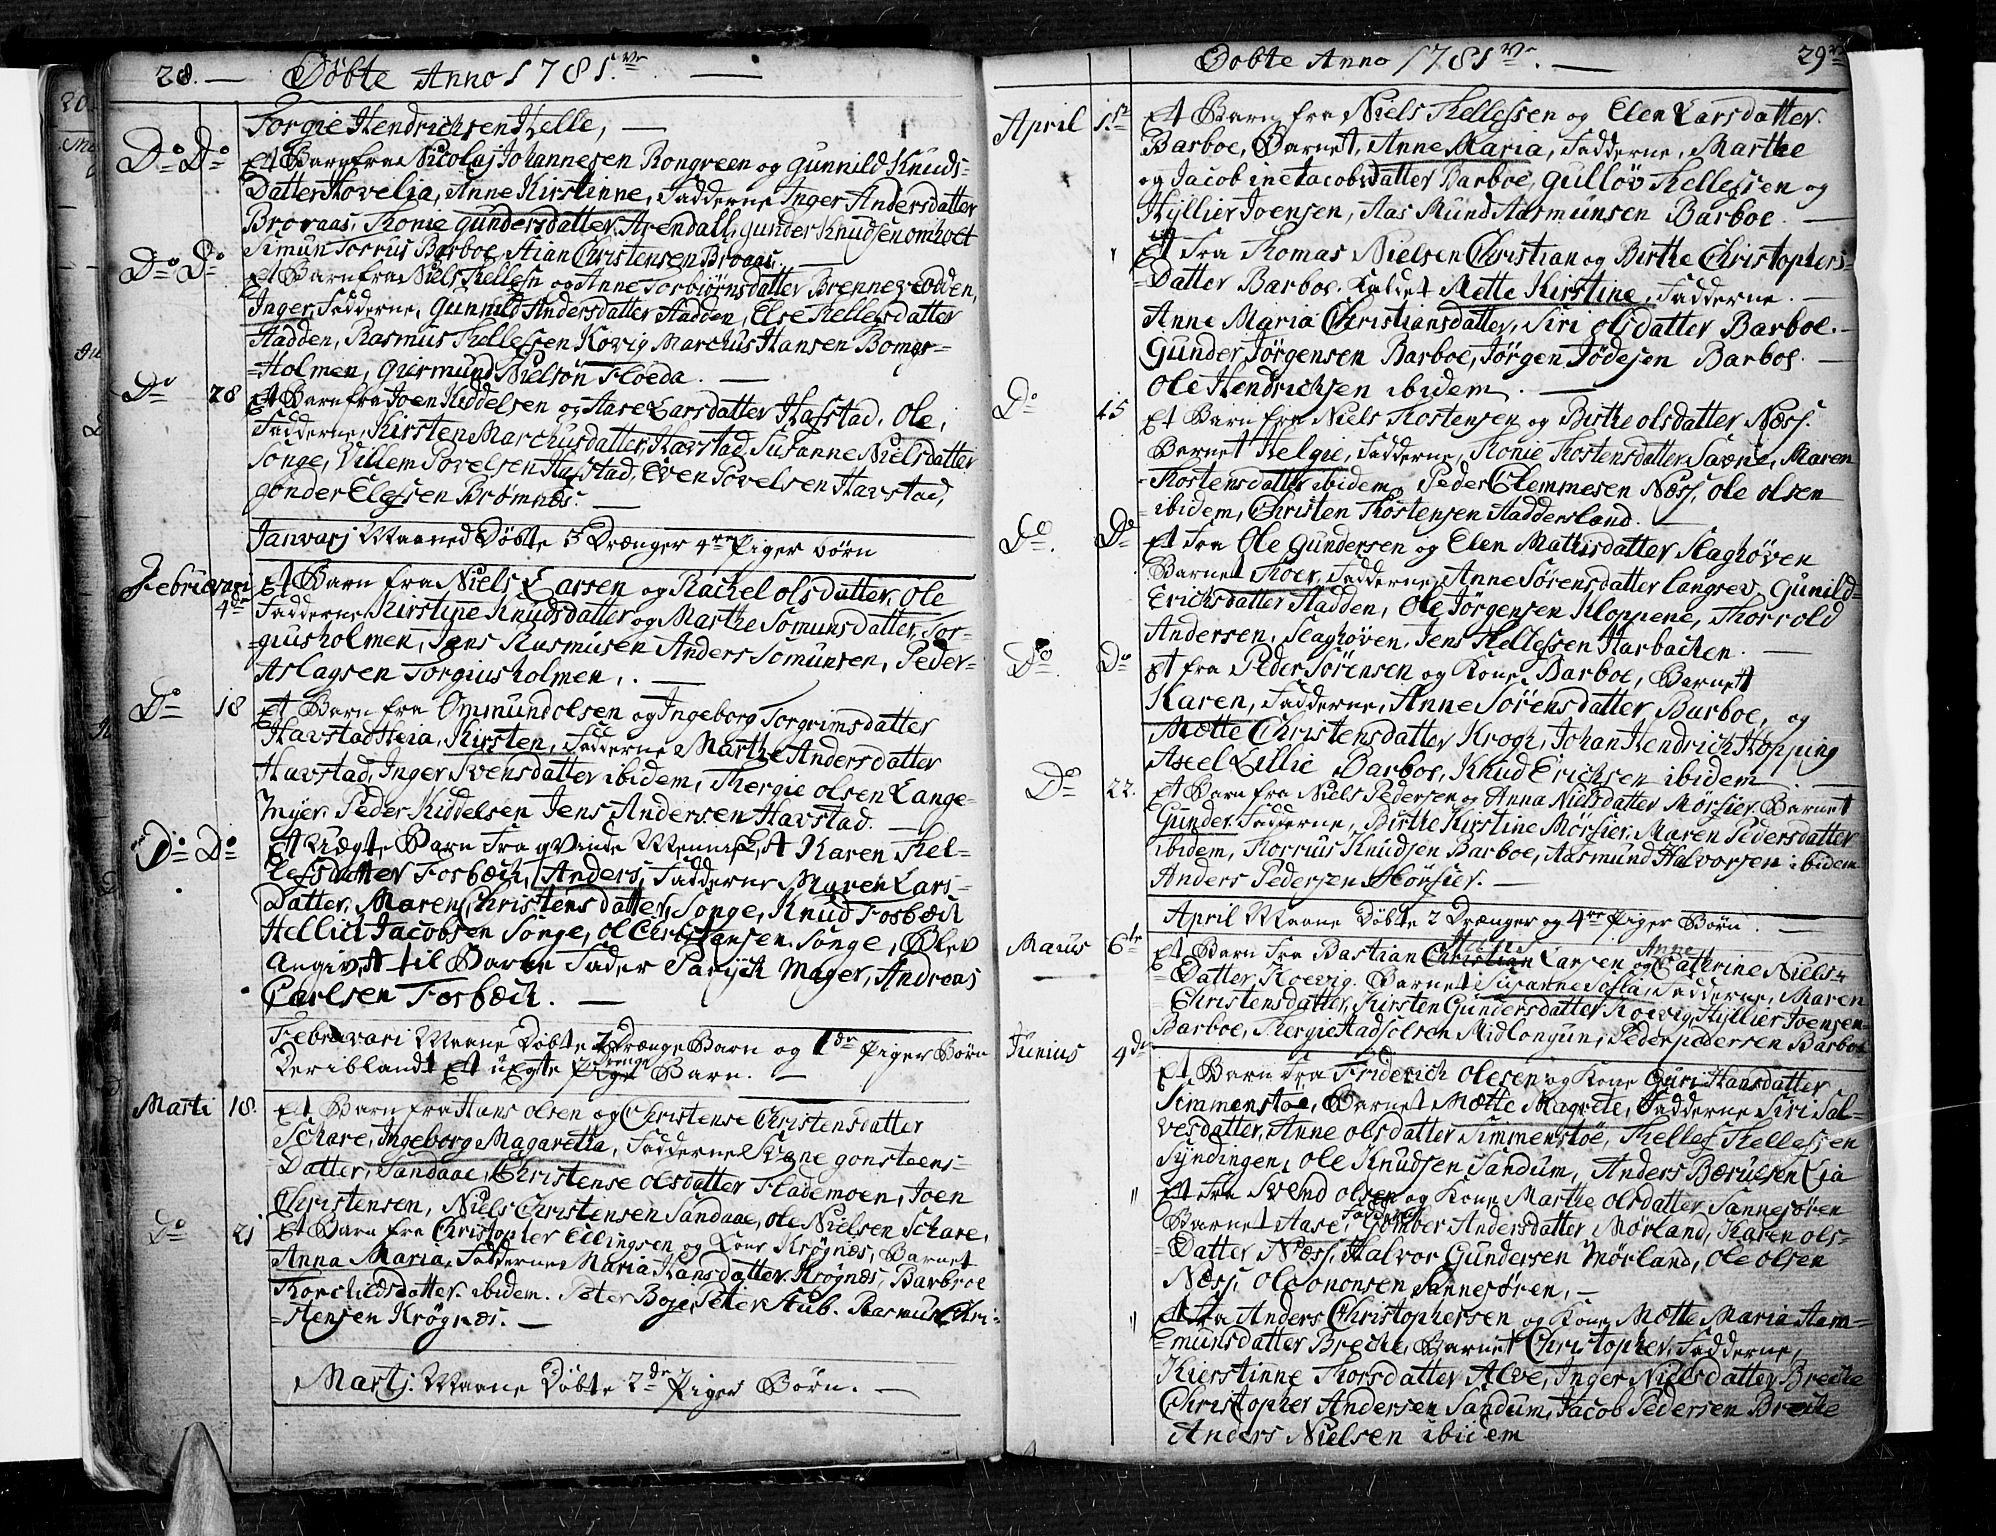 28. — Døbte Anno 1781.ve —
Torgie Hendrichsen Helle, —
Do Do Et Barn fra Nicolaj Johannesen Rongreen og Gunnild Knuds-
Datter Hovelia, Anne Kirstinne, Fadderne Inger Andersdatter
Brovaas, Tronie Gundersdatter Arendall, Gunder Knudsen omholt
Simun Torrus Barboe, Stian Christensen Broaas. —
Do Do Et Barn fra Niels Thellefsn og Anne Torbiørnsdatter Brennevolden,
Inger, Fadderne, Gunnild Andersdatter Stadden, Else Thellefsdatter
Stadden, Rasmus Thellefsen Kovig Marchus Hansen Bomgs-
=Holmen, Guermund Nielsøn Floeda. —
Do 28 Et Barn fra Joen Kiddelsen og Aase Larsdatter Hafstad, Ole,
Fadderne, Kirsten Marchusdatter, Havstad, Susanne Nielsdatter
Songe, Villem Povelsen Hafstad, Even Povelsen Havstad,
Gonder Elefsen Brømnæs. —
Janvarj Maaned Døbte 5 Drænger 4re Piger børn
Februvari 4de Et Barn fra Niels Larsen og Rachel olsdatter, Ole
Fadderne Kirstine Knudsdatter og Marthe Somunsdatter, Tor-
=giusholmen, Jens Rasmusen Anders Somunsen, Peder
Aslagsen Torgiusholmen, . —
Do 18 Et Barn fra Ommund olsen og Ingeborg Torgrimsdatter
Havstadheia, Kirsten, Fadderne Marthe Andersdatter
Havstad, Inger Svensdatter ibidem, Thergie olsen Lange-
myer, Peder Kiddelsen Jens Andersen Havstad. —
Do Do Et Uægte Barn Fra qvinde Mennisket Karen Thel-
lefsdatter Fosbæch, Anders, Fadderne Maren Lars-
Datter, Maren Christensdatter, Songe, Knud Fosbæch
Hellich Jacobsen Songe, ol Christensen Songe, Blev
angivet til Barne Fader Patrich Mager, Andreas
Carlsen Fosbæch. —
Februvari Maane Døbte 2 Drænge Barn og 1de Piger Børn
Deriblandt Et uegte Drenge Barn. —
Marti 18. Et Barn fra Hans olsen og Christense Christensdatter
Schare, Ingeborg Magaretta, Fadderne Svane gonsteens-
Datter, Sandaae, Christense olsdatter Flademoen, Joen
Christensen, Niels Christensen Sandaae, ole Nielsen Schare,
Do 21 Et Barn fra Christopher Ellingsen og Kone Krøgnæs, Barnet
Anna Maria, Fadderne Maria Hansdatter Krøgnæs, Barbroe
Torchildsdatter ibidem. Peter Boje, Peter Stub. Rasmus Chri-
=stensen Krøgnæs. —
Martj. Maane Døbte 2de Piger Børn. —
Døbte Anno 1781ve. — 29ve
April 1ste Et Barn fra Niels Thellefsen og Elen Larsdatter
Barboe, Barnet, Anne Maria, Fadderne, Marthe
og Jacob ine Jacobsdatter Barboe, Gulløv Thellefsen og
Hyllier Joensen, Aas Mund Aasmunsen Barboe. —
Et Fra Thomas Nielsen Christian og Birthe Christophers-
=Datter Barboe. Kaldet Mette Kirstine, Fadderne. —
Anne Maria Christiansdatter, Siri olsdatter Barboe. —
Gunder Jørgensen Barboe, Jørgen Jødesen Barboe. —
Ole Hendrichsen ibidem. —
Do 15 Et Barn fra Niels Tostensen og Birthe olsdatter Næss.
Barnet Helgie, Fadderne, Thonie Tostensdatter Saxne, Maren
Tostensdatter ibidem, Peder Clemmesen Næss, ole olsen
ibidem, Christen Tostensen Staddersland. —
Do. Do Et Fra Ole Gundersen og Elen Mathisdatter Slaghøven
Barnet Thoer, Fadderne, Anne Sørensdatter Langsev, Gunild
Erichsdatter Stadden, Ole Jørgensen Kloppene, Thorvold
Andersen, Slaghøven, Jens Thellefsen Harbachen. —
Do. Do Et fra Peder Sørensen og Kone, Barboe, Barnet
Karen, Fadderne, Anne Sørensdatter Barboe, og
Mætte Christensdatter Krogh, Johan Hendrich Høpping
Axel Lillie Barboe, Knud Erichsen ibidem. —
Do 22. Et Barn fra Niels Pedersen og Anna Nielsdatter Mørfier, Barnet
Gunder, Fadderne, Birthe Kirstine Mørfier, Maren Pedersdatter
ibidem, Thorrius Knudsen Barboe, Aasmund Halvorsen ibidem
Anders Pedersen Morfier. —
April Maane Døbte 2 Drænger og 4re Piger Børn. —
Maius 6te Et Barn Fra Bastian Larsen og Anne Cathrine Niels-
=Datter, Koevig, Barnet Susanne Sofia, Fadderne, Maren
=Christensdatter, Kirsten Gundersdatter Koevig, Hyllier Joensen
Barboe, Thergie Stadfolsen Midlongun, Peder pedersen Barboe
Junius 4de Et Barn fra Friderich olesen og Kone Guri Hansdatter
Simmenstoe, Barnet Mætte Magrete, Fadderne Siri Sal-
vesdatter, Anne olsdatter Simmenstøe, Thellef Thellefsen
Syndingen, ole Knudsen Sandum, Anders Bærulsen Lia
" Et Fra Svend olsen og Kone Marthe olsdatter, Sannesøren
Barnet Aase, Fadderne Gomber Andersdatter, Mørland, Karen ols-
=Datter Næss, Halvor Gundersen Mørland, ole olsen
Næss, ole Sononsen Sannesøren, —
" Et Fra Anders Christophersen og Kone Mætte Maria Aam-
=munsdatter Breche, Barnet Christopher, Fadderne,
Kierstinne Thorsdatter Alve, Inger Nielsdatter Breche
Christopher Andersen Sandum, Jacob Pedersen Breche
Anders Nielsen ibidem